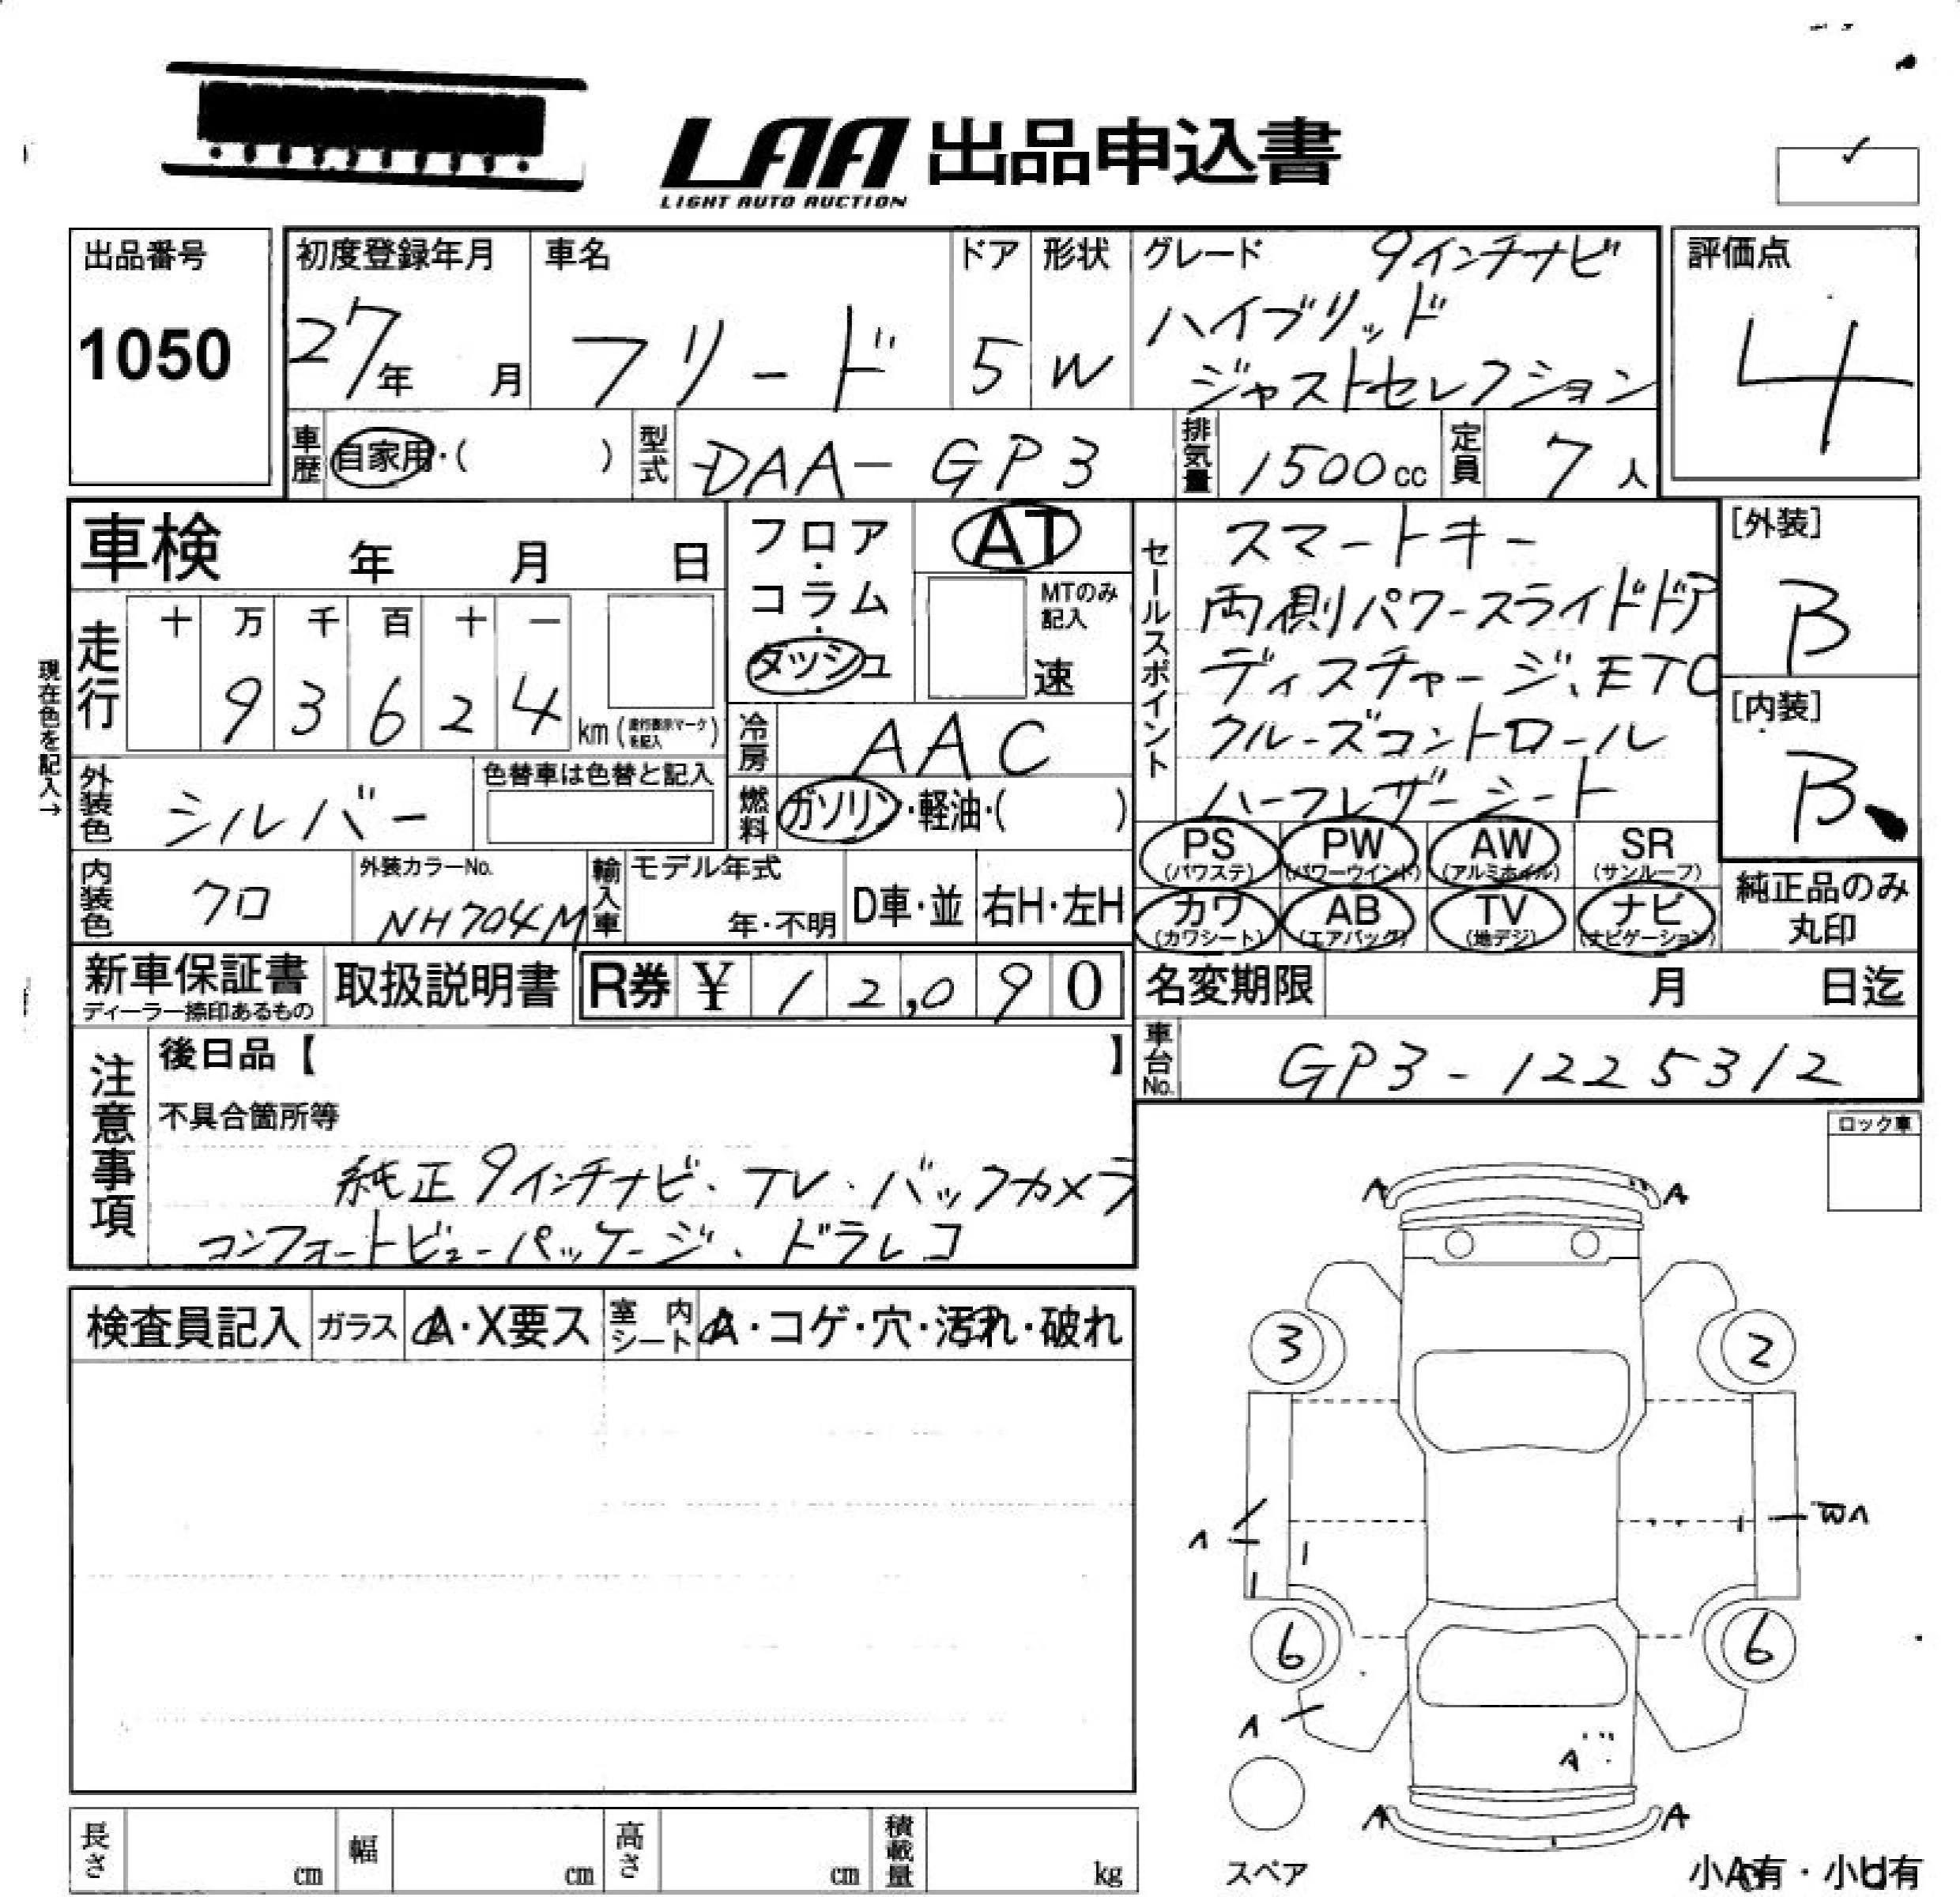 LAA 出品申込書
LIGHT AUTO AUCTION
出品番号
1050
初度登録年月
27年 月
車名
フリード
ドア
5
形状
W
グレード 9インチナビ
ハイブリッド
ジャストセレクション
評価点
4
車歴 自家用・( )
型式 DAA-GP3
排気量 1500cc
定員 7人
車検 年 月 日
フロア・
コラム・
ダッシュ
AT
MTのみ
記入
速
セールスポイント
スマートキー
両側パワースライドドア
ディスチャージ、ETC
クルーズコントロール
ハーフレザーシート
[外装]
B
[内装]
B
現在色を記入→
走行
十 万 千 百 十 一
9 3 6 2 4 km(走行表示マークを記入)
冷房 AAC
外装色 シルバー
色替車は色替と記入
燃料 ガソリン・軽油・( )
PS PW AW SR
(パワステ) (パワーウインド) (アルミホイル) (サンルーフ)
カワ AB TV ナビ
(カワシート) (エアバック) (地デジ) (ナビゲーション)
純正品のみ
丸印
内装色 クロ
外装カラーNo.
NH704M
輸入車
モデル年式
年・不明
D車・並
右H・左H
新車保証書
ディーラー捺印あるもの
取扱説明書
R券 ¥12,090
名変期限 月 日迄
車台No. GP3-1225312
注意事項
後日品【 】
不具合箇所等
純正9インチナビ・TV・バックカメラ
コンフォートビューパッケージ、ドラレコ
ロック車
検査員記入
ガラス A・X要ス
室内シート A・コゲ・穴・汚れ・破れ
A A
3 2
A
6 6
A
A
A A
スペア
小A有・小U有
長さ cm
幅 cm
高さ cm
積載量 kg